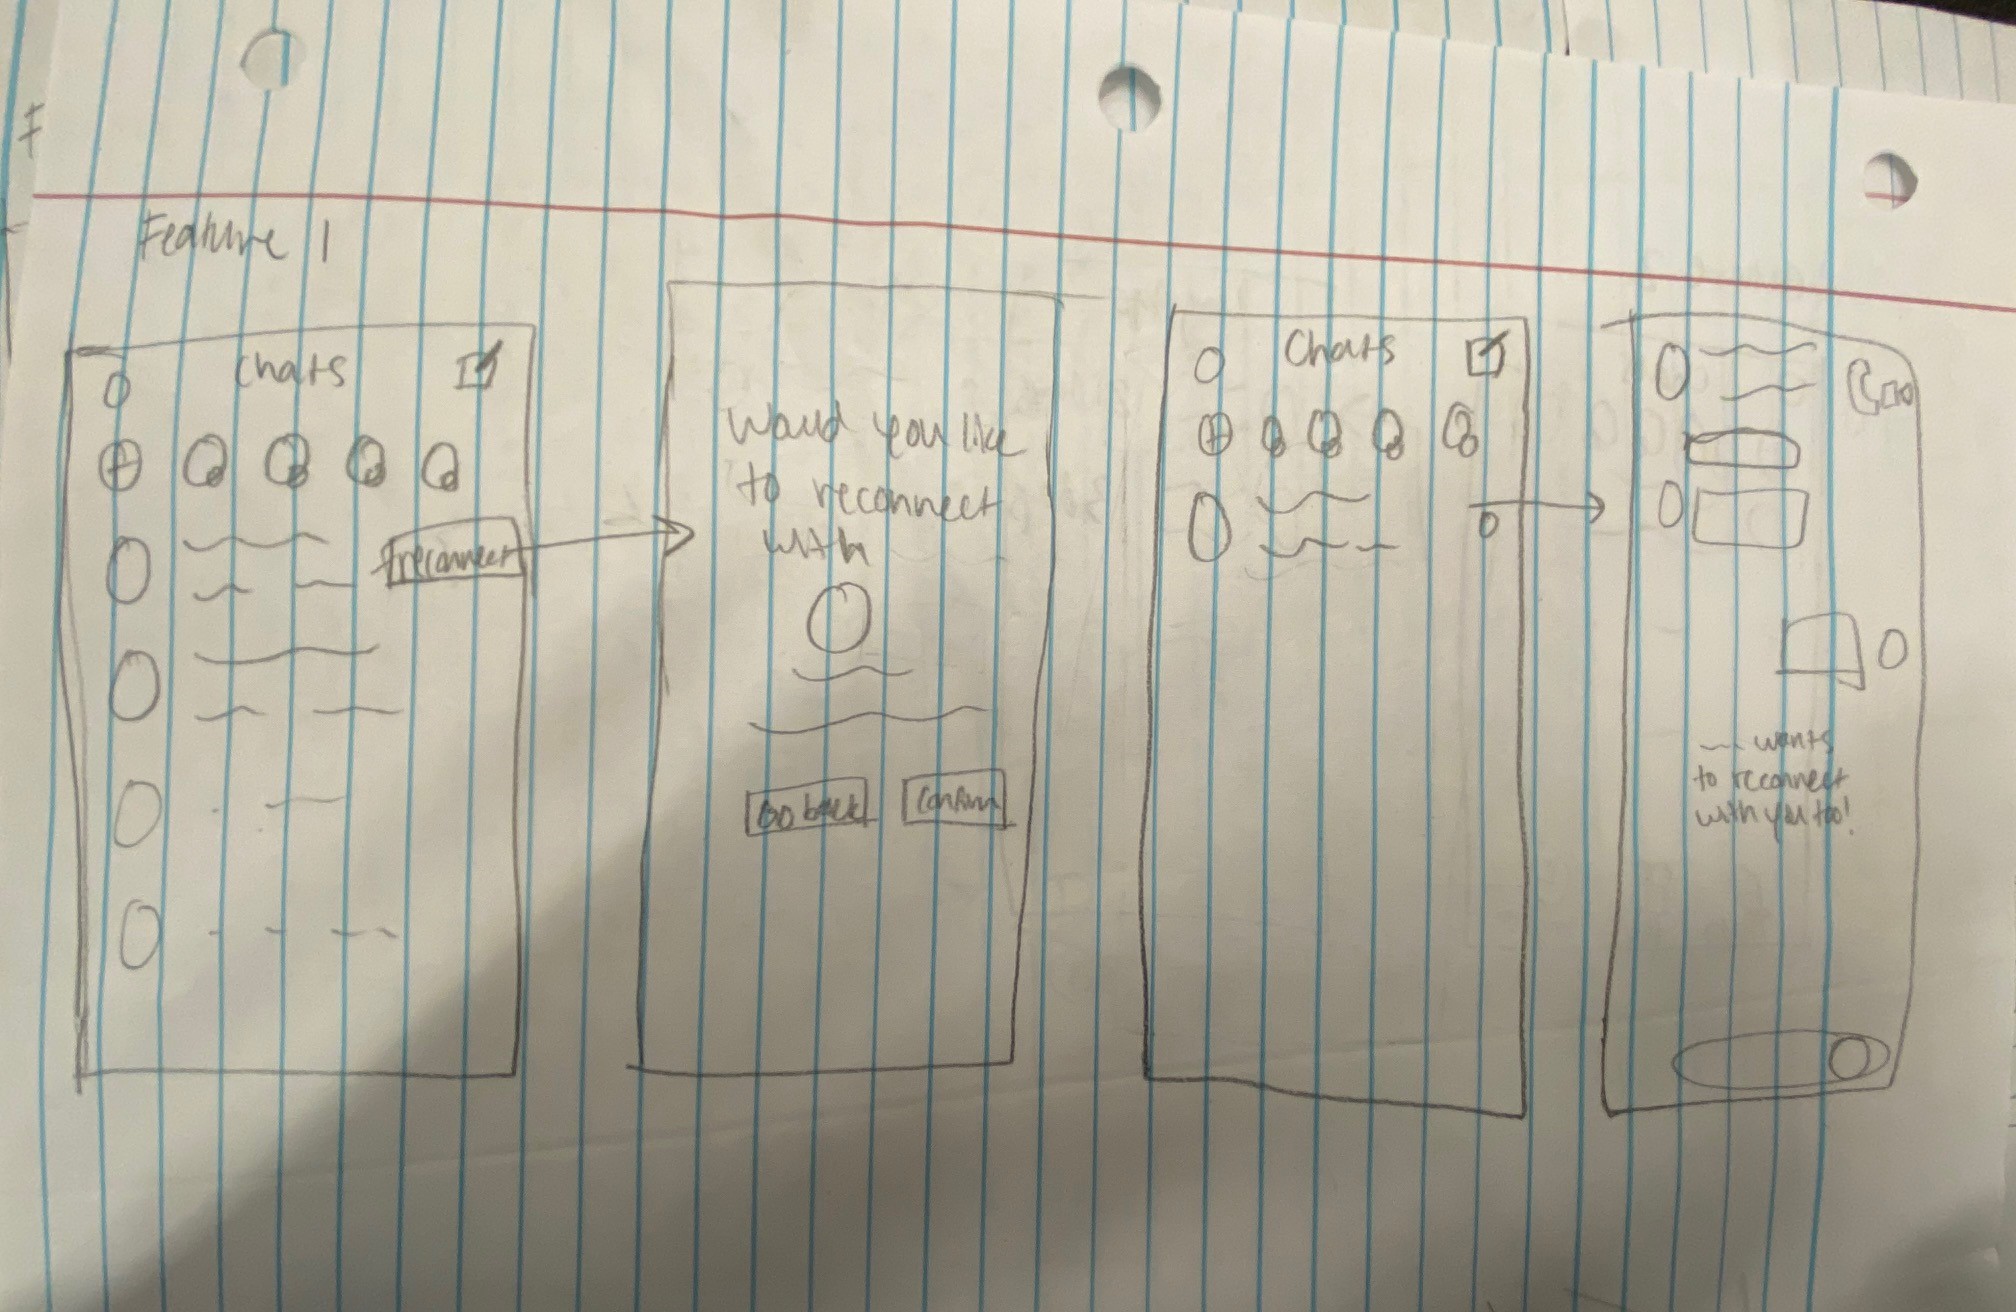 Feature 1
Chats
reconnect
Would you like
to reconnect
with
Go back
Confirm
Chats
wants
to reconnect
with you too!